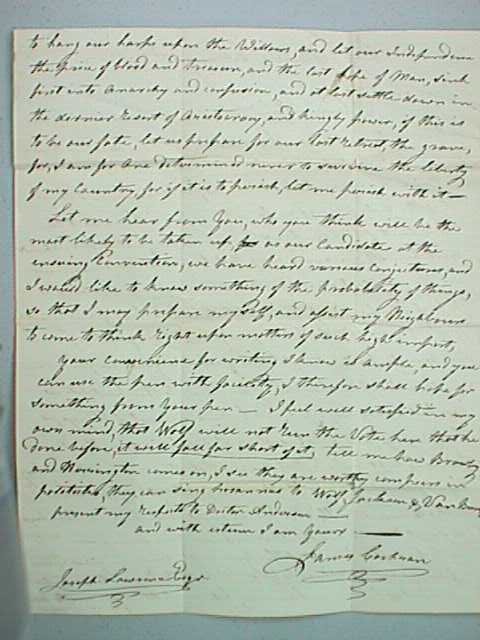 to hang our harps upon the Willows, and let our Independence
the price of blood and treasure, and the last hope of Man, sink
first into Anarchy and confusion, and at last settle down in
the dernier resort of Aristocracy, and kingly power, if this is
to be our fate, let us prepare for our last retreat, the grave,
for, I am for one determined never to survive the liberty
of my Country, for if it is to perish, let me perish with it —
Let me hear from You, who you think will be the
most likely to be taken up as our Candidate at the
ensuing Convention, we have heard various conjectures, and
I would like to know something of the probability of things,
so that I may prepare myself, and assist my Neighbours
to come to think right upon matters of such high import,
your convenience for writing I know is ample, and you
can use the pen with facility, I therefore shall hope for
something from your pen — I feel well satisfied in my
own mind, that Wolf will not run the Vote here that he
done before, it will fall far short of it, tell me how
and comes on, I see they are worthy compeers in
politicks, they can sing hosannas to Wolf, Jackson & Van
present my respects to Doctor Anderson —
and with esteem I am Yours —
James
Joseph Lawrence Esqr